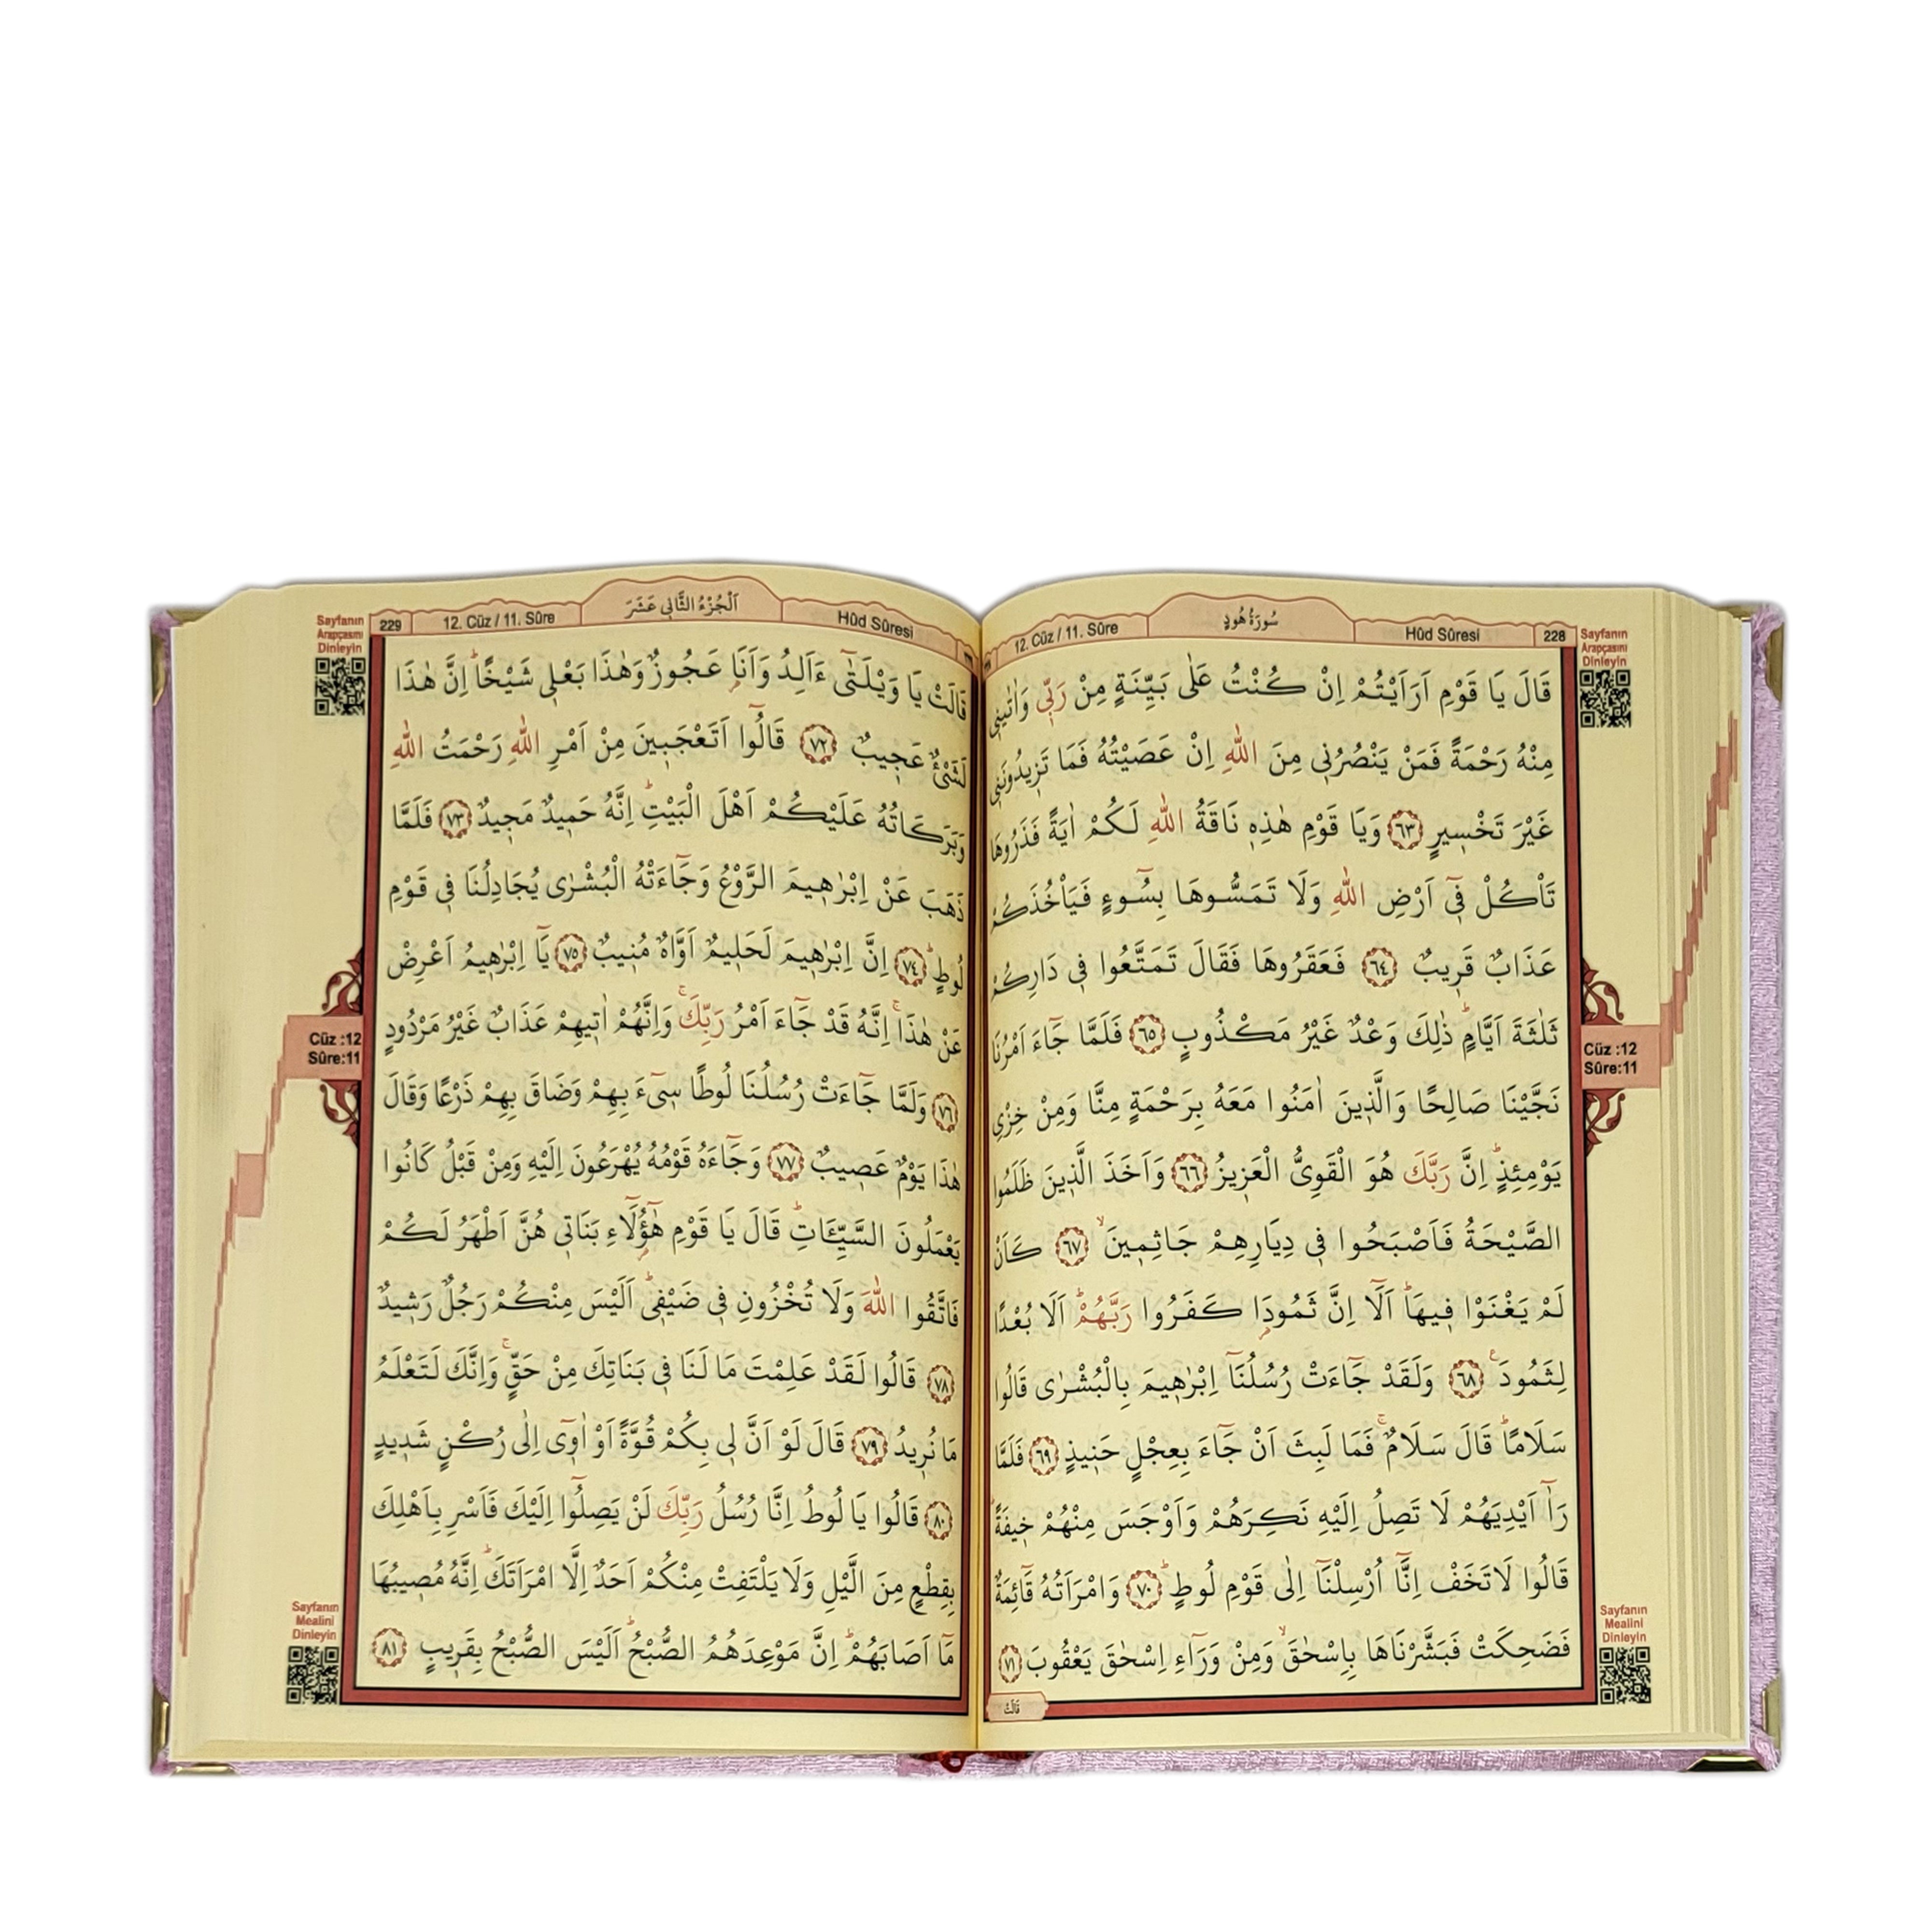 Sayfanın
Arapçasını
Dinleyin
228
Hûd Sûresi
سُورَةُ هُودٍ
12. Cüz / 11. Sûre
قَالَ يَا قَوْمِ اَرَاَيْتُمْ اِنْ كُنْتُ عَلٰى بَيِّنَةٍ مِنْ رَبّ۪ي وَاٰتٰين۪ي
مِنْهُ رَحْمَةً فَمَنْ يَنْصُرُن۪ي مِنَ اللّٰهِ اِنْ عَصَيْتُهُ فَمَا تَز۪يدُونَن۪ي
غَيْرَ تَخْس۪يرٍ ﴿٦٣﴾ وَيَا قَوْمِ هٰذِه۪ نَاقَةُ اللّٰهِ لَكُمْ اٰيَةً فَذَرُوهَا
تَاْكُلْ ف۪ٓي اَرْضِ اللّٰهِ وَلَا تَمَسُّوهَا بِسُٓوءٍ فَيَاْخُذَكُمْ
عَذَابٌ قَر۪يبٌ ﴿٦٤﴾ فَعَقَرُوهَا فَقَالَ تَمَتَّعُوا ف۪ي دَارِكُمْ
ثَلٰثَةَ اَيَّامٍۜ ذٰلِكَ وَعْدٌ غَيْرُ مَكْذُوبٍ ﴿٦٥﴾ فَلَمَّا جَٓاءَ اَمْرُنَا
نَجَّيْنَا صَالِحًا وَالَّذ۪ينَ اٰمَنُوا مَعَهُ بِرَحْمَةٍ مِنَّا وَمِنْ خِزْيِ
يَوْمِئِذٍۜ اِنَّ رَبَّكَ هُوَ الْقَوِيُّ الْعَز۪يزُ ﴿٦٦﴾ وَاَخَذَ الَّذ۪ينَ ظَلَمُوا
الصَّيْحَةُ فَاَصْبَحُوا ف۪ي دِيَارِهِمْ جَاثِم۪ينَۙ ﴿٦٧﴾ كَاَنْ
لَمْ يَغْنَوْا ف۪يهَاۜ اَلَٓا اِنَّ ثَمُودَا۬ كَفَرُوا رَبَّهُمْۜ اَلَا بُعْدًا
لِثَمُودَ۟ ﴿٦٨﴾ وَلَقَدْ جَٓاءَتْ رُسُلُنَٓا اِبْرٰه۪يمَ بِالْبُشْرٰى قَالُوا
سَلَامًاۜ قَالَ سَلَامٌۚ فَمَا لَبِثَ اَنْ جَٓاءَ بِعِجْلٍ حَن۪يذٍ ﴿٦٩﴾ فَلَمَّا
رَآٰ اَيْدِيَهُمْ لَا تَصِلُ اِلَيْهِ نَكِرَهُمْ وَاَوْجَسَ مِنْهُمْ خ۪يفَةًۜ
قَالُوا لَا تَخَفْ اِنَّٓا اُرْسِلْنَٓا اِلٰى قَوْمِ لُوطٍۜ ﴿٧٠﴾ وَامْرَاَتُهُ قَٓائِمَةٌ
فَضَحِكَتْ فَبَشَّرْنَاهَا بِاِسْحٰقَۙ وَمِنْ وَرَٓاءِ اِسْحٰقَ يَعْقُوبَ ﴿٧١﴾
قَالَتْ
Cüz :12
Sûre:11
Sayfanın
Mealini
Dinleyin
Hûd Sûresi
اَلْجُزْءُ الثَّان۪ي عَشَرَ
12. Cüz / 11. Sûre
229
Sayfanın
Arapçasını
Dinleyin
قَالَتْ يَا وَيْلَتٰٓى ءَاَلِدُ وَاَنَا۬ عَجُوزٌ وَهٰذَا بَعْل۪ي شَيْخًاۜ اِنَّ هٰذَا
لَشَيْءٌ عَج۪يبٌ ﴿٧٢﴾ قَالُٓوا اَتَعْجَب۪ينَ مِنْ اَمْرِ اللّٰهِ رَحْمَتُ اللّٰهِ
وَبَرَكَاتُهُ عَلَيْكُمْ اَهْلَ الْبَيْتِۜ اِنَّهُ حَم۪يدٌ مَج۪يدٌ ﴿٧٣﴾ فَلَمَّا
ذَهَبَ عَنْ اِبْرٰه۪يمَ الرَّوْعُ وَجَٓاءَتْهُ الْبُشْرٰى يُجَادِلُنَا ف۪ي قَوْمِ
لُوطٍۜ ﴿٧٤﴾ اِنَّ اِبْرٰه۪يمَ لَحَل۪يمٌ اَوَّاهٌ مُن۪يبٌ ﴿٧٥﴾ يَٓا اِبْرٰه۪يمُ اَعْرِضْ
عَنْ هٰذَاۚ اِنَّهُ قَدْ جَٓاءَ اَمْرُ رَبِّكَۚ وَاِنَّهُمْ اٰت۪يهِمْ عَذَابٌ غَيْرُ مَرْدُودٍ
﴿٧٦﴾ وَلَمَّا جَٓاءَتْ رُسُلُنَا لُوطًا س۪ٓيءَ بِهِمْ وَضَاقَ بِهِمْ ذَرْعًا وَقَالَ
هٰذَا يَوْمٌ عَص۪يبٌ ﴿٧٧﴾ وَجَٓاءَهُ قَوْمُهُ يُهْرَعُونَ اِلَيْهِ وَمِنْ قَبْلُ كَانُوا
يَعْمَلُونَ السَّيِّـَٔاتِۜ قَالَ يَا قَوْمِ هٰٓؤُ۬لَٓاءِ بَنَات۪ي هُنَّ اَطْهَرُ لَكُمْ
فَاتَّقُوا اللّٰهَ وَلَا تُخْزُونِ ف۪ي ضَيْف۪يۜ اَلَيْسَ مِنْكُمْ رَجُلٌ رَش۪يدٌ
﴿٧٨﴾ قَالُوا لَقَدْ عَلِمْتَ مَا لَنَا ف۪ي بَنَاتِكَ مِنْ حَقٍّۚ وَاِنَّكَ لَتَعْلَمُ
مَا نُر۪يدُ ﴿٧٩﴾ قَالَ لَوْ اَنَّ ل۪ي بِكُمْ قُوَّةً اَوْ اٰو۪ٓي اِلٰى رُكْنٍ شَد۪يدٍ
﴿٨٠﴾ قَالُوا يَا لُوطُ اِنَّا رُسُلُ رَبِّكَ لَنْ يَصِلُٓوا اِلَيْكَ فَاَسْرِ بِاَهْلِكَ
بِقِطْعٍ مِنَ الَّيْلِ وَلَا يَلْتَفِتْ مِنْكُمْ اَحَدٌ اِلَّا امْرَاَتَكَۜ اِنَّهُ مُص۪يبُهَا
مَٓا اَصَابَهُمْۜ اِنَّ مَوْعِدَهُمُ الصُّبْحُۜ اَلَيْسَ الصُّبْحُ بِقَر۪يبٍ ﴿٨١﴾
Cüz :12
Sûre:11
Sayfanın
Mealini
Dinleyin